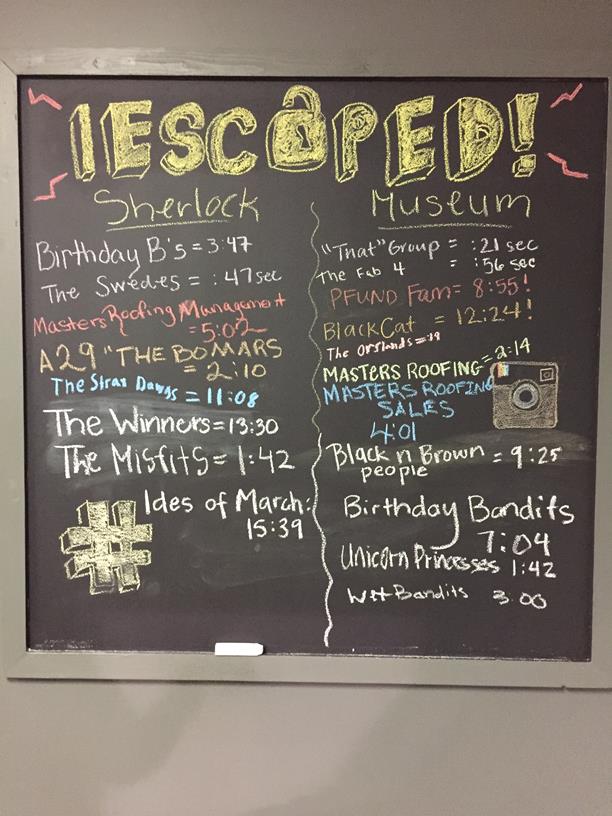 IESCAPED!
Sherlock
Birthday B's = 3:47
The Swedes = :47sec
Masters Roofing Management
= 5:02
A29 "THE BOMARS
= 2:10
The Dawgs = 11:08
The Winners = 13:30
The Misfits = 1:42
#
Ides of March:
15:39
Museum
"That" Group = :21 sec
The Fab 4 = :56 sec
PFUND Fam = 8:55!
BlackCat = 12:24!
The
MASTERS ROOFING = 2:14
MASTERS ROOFING
SALES
4:01
Black n Brown = 9:25
people
Birthday Bandits
7:04
Unicorn Princesses 1:42
Wet Bandits 3:00